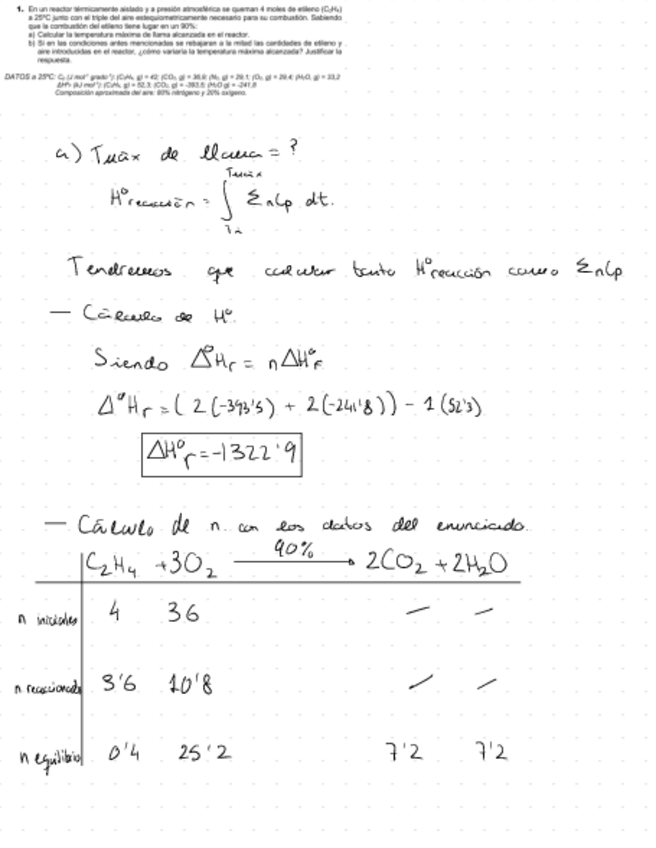 1. En un reactor térmicamente aislado y a presión atmosférica se queman 4 moles de etileno (C₂H₄)
a 25ºC junto con el triple del aire estequiométricamente necesario para su combustión. Sabiendo
que la combustión del etileno tiene lugar en un 90%:
a) Calcular la temperatura máxima de llama alcanzada en el reactor.
b) Si en las condiciones antes mencionadas se rebajaran a la mitad las cantidades de etileno y
aire introducidas en el reactor, ¿cómo variaría la temperatura máxima alcanzada? Justificar la
respuesta.
DATOS a 25ºC: Cₚ (J mol⁻¹ grado⁻¹): (C₂H₄, g) = 42; (CO₂, g) = 36,8; (N₂, g) = 29,1; (O₂, g) = 29,4; (H₂O, g) = 33,2
ΔHºf (kJ mol⁻¹): (C₂H₄, g) = 52,3; (CO₂, g) = -393,5; (H₂O g) = -241,8
Composición aproximada del aire: 80% nitrógeno y 20% oxígeno.
a) Tmáx de llama = ?
Tmáx
Hºreacción = ∫ ΣnCp dt.
Tendremos que calcular tanto Hºreacción como ΣnCp
— Cálculo de Hº.
Siendo ΔºHr = nΔHºF
ΔºHr = (2(-393'5) + 2(-241'8)) - 1(52'3)
ΔHºr = -1322'9
— Cálculo de n con los datos del enunciado.
C₂H₄ + 3O₂ 90% → 2CO₂ + 2H₂O
n iniciales 4 36 — —
n reaccionado 3'6 10'8 — —
n equilibrio 0'4 25'2 7'2 7'2